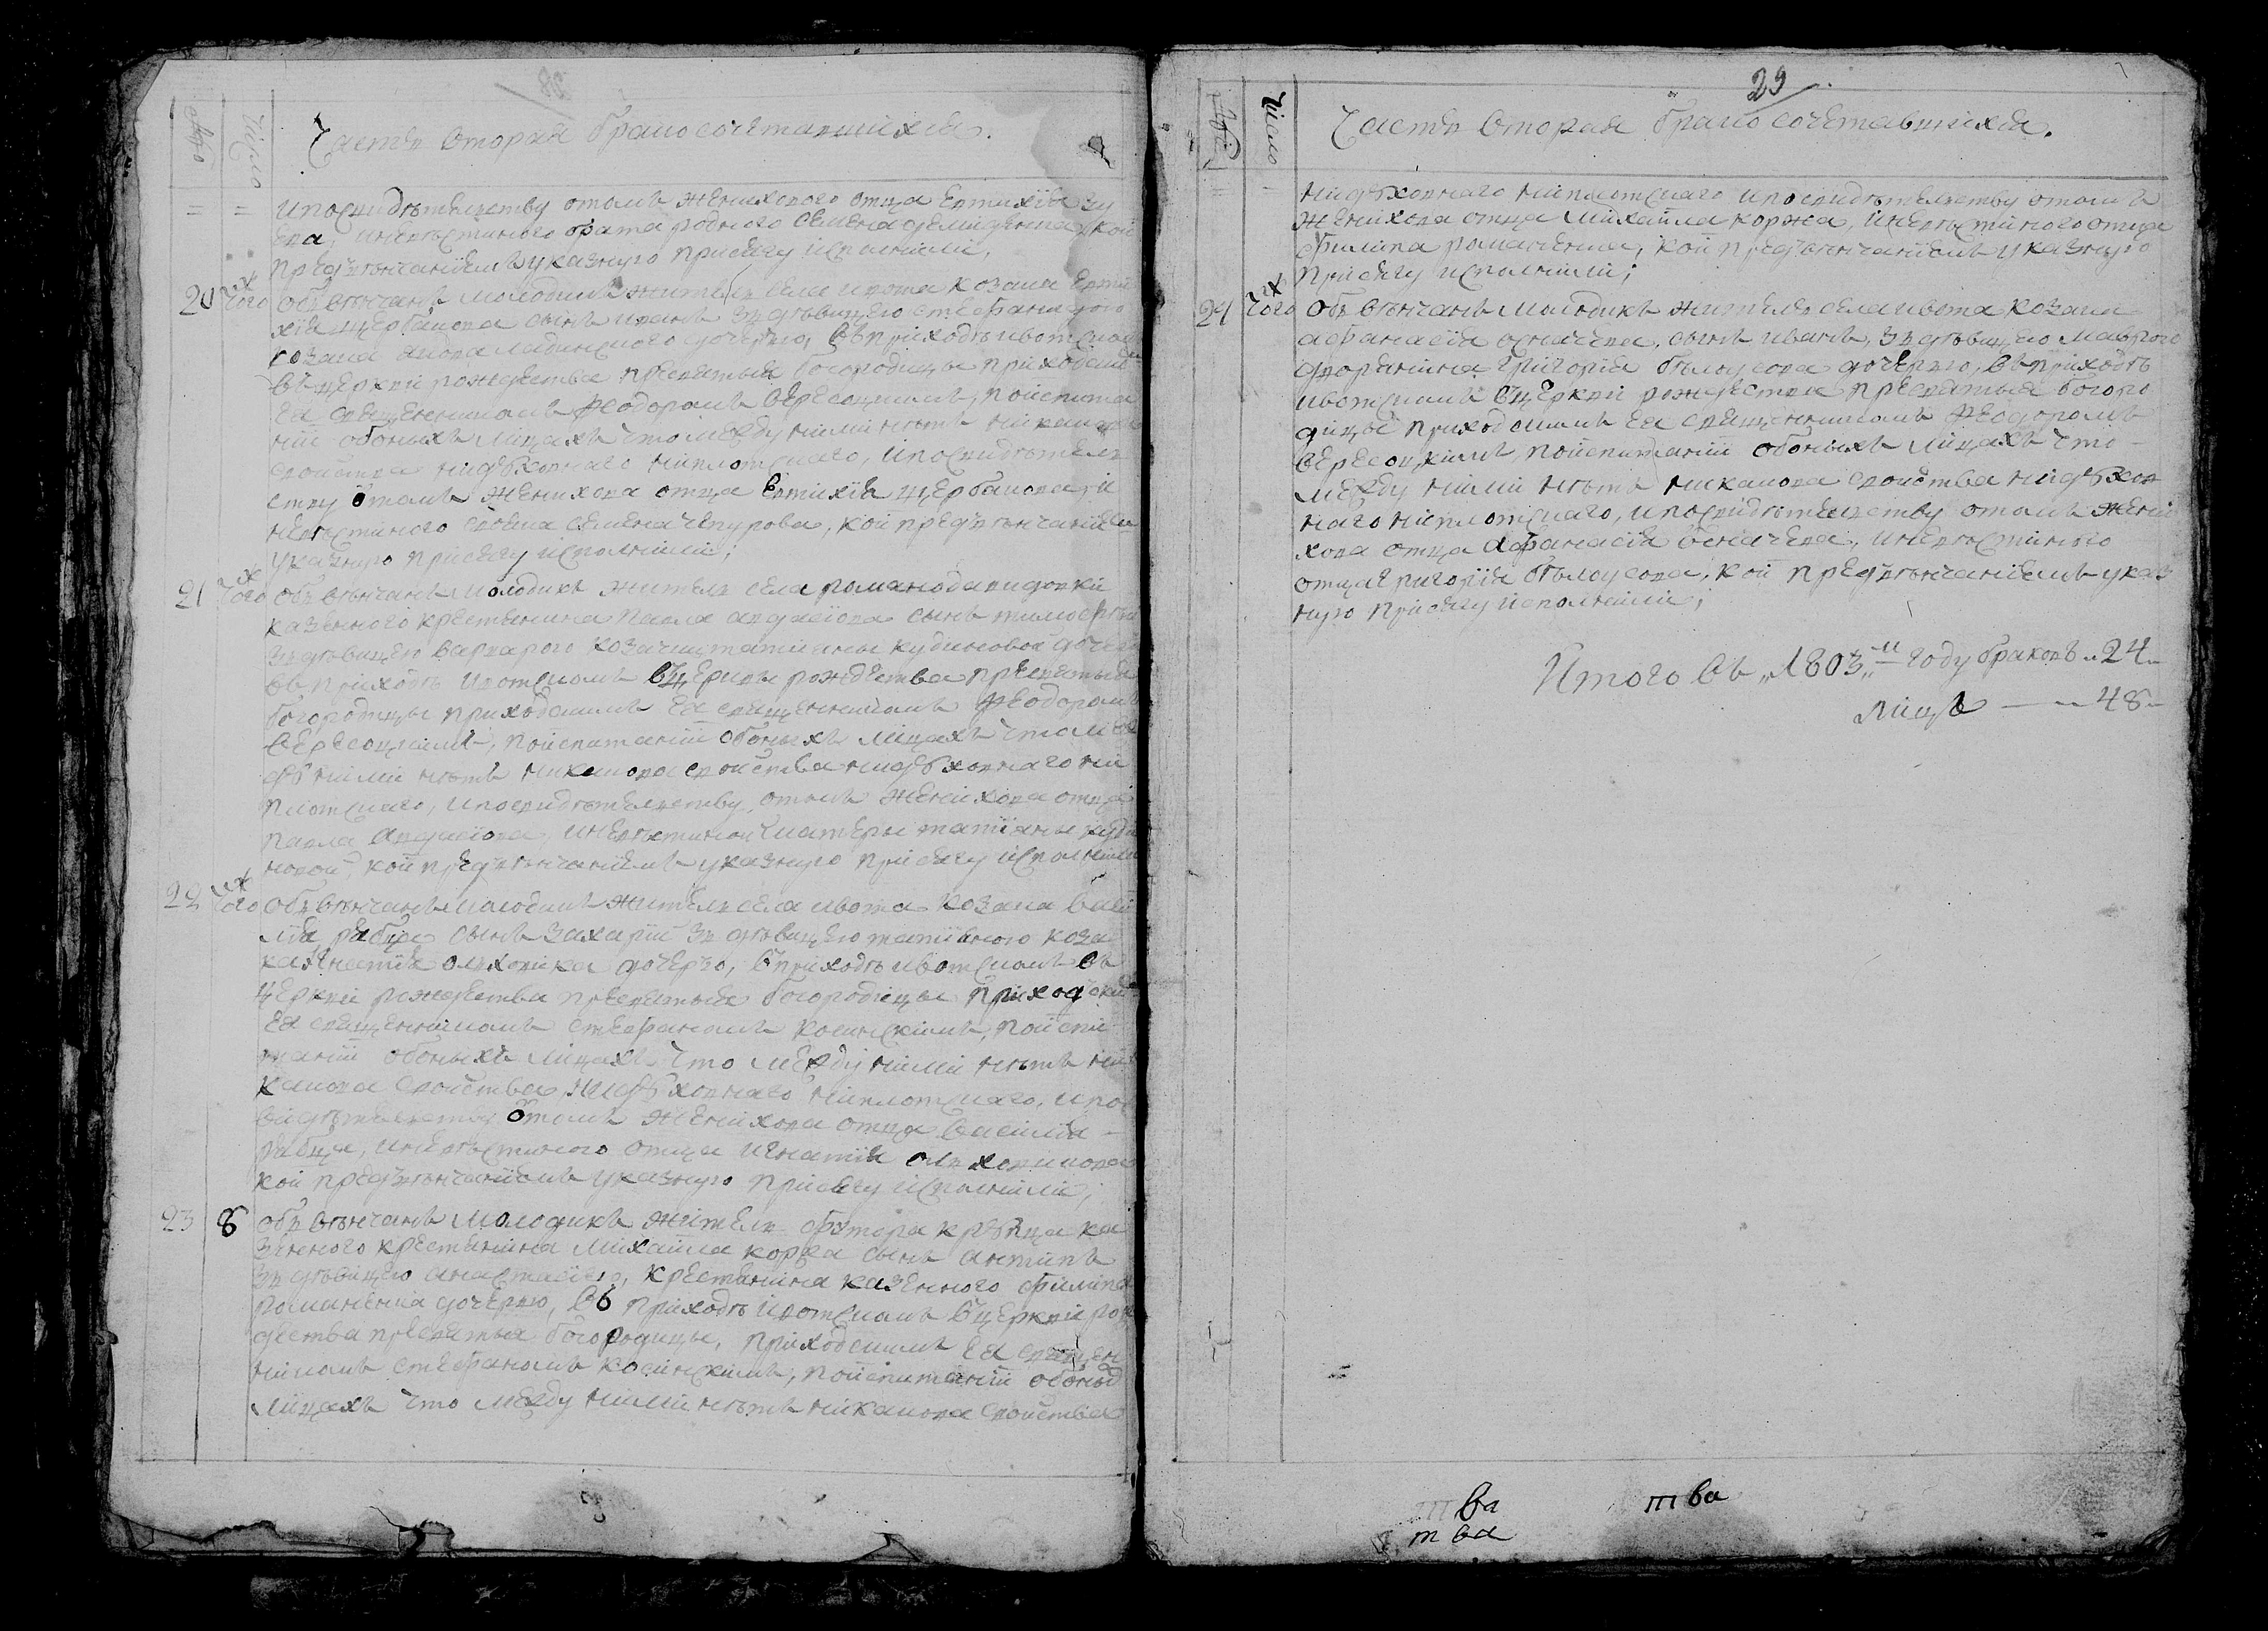 Число
Часть вторая бракосочетавшихся.
и посвидѣтелству отомъ женихового отца Евтихія
ева, и невѣстиного брата родного Семена Демиденка, кои
предвѣнчаніемъ указную присягу исполнили,
20 того обвѣнчанъ молодикъ житель села ивота козака Евти
хія щербакова сынъ иванъ здѣвицею стефанидою
козака дочерью, въ приходѣ ивотском
въ церкви рождества пресвятыя богородицы приходским
ея священникомъ Феодоромъ Вересоцкимъ, по испита
ніи обоныхъ лицахъ что между ними нѣтъ никакова
свойства нидуховнаго ниплотскаго, и посвидѣтель
ству отомъ женихова отца Евтихія щербакова, и
невѣстиного Семена чепурова, кои предвѣнчаніем
указную присягу исполнили;
21 того обвѣнчанъ молодикъ житель села романо
казенного крестянина Павла сынъ тимофей
здѣвицею варварою козачки татияны кудиновой дочер
въ приходѣ ивотскомъ въ церкви рождества пресвятыя
богородицы приходскимъ ея священникомъ Феодоромъ
Вересоцкимъ, по испитаніи обоныхъ лицахъ что меж
ду ними нѣтъ никакова свойства нидуховнаго ни
плотскаго, и посвидѣтелству отомъ женихова отца
павла и невѣстиной матери татіяны куди
новой, кои предвѣнчаніемъ указную присягу исполнили
22 того обвѣнчанъ молодикъ житель села ивота козака Васи
лія рабца сынъ захарій здѣвицею татіяною коза
ка дочерью, в приходѣ ивотскомъ въ
церкви рождества пресвятыя богородицы приходским
ея священникомъ стефаномъ косинскимъ, по испи
таніи обоныхъ лицахъ что между ними нѣтъ ни
какова свойства нидуховнаго ниплотскаго, и пос
видѣтелству отомъ женихова отца Василія
рабца, и невѣстиного отца игнатія
кои предвѣнчаніемъ указную присягу исполнили;
23 8 обвѣнчанъ молодикъ житель ка
зенного крестянина михайла коржа сынъ антипъ
здѣвицею анастасіею, крестянина казенного филипа
романенка дочерью, въ приходѣ ивотскомъ въ церкви рож
дества пресвятыя богородицы, приходскимъ ея священ
никомъ стефаномъ косинскимъ, по испитаніи обоных
лицахъ что между ними нѣтъ никакова свойства
29
Число
Часть вторая бракосочетавшихся.
нидуховнаго ниплотскаго и посвидѣтелству отомъ
женихова отца михайла коржа, и невѣстиного отца
филипа романенка, кои предвѣнчаніемъ указную
присягу исполнили;
24 того обвѣнчанъ молодикъ житель села ивота козака
афанасія осначева сынъ иванъ, здѣвицею маврою
дворянина григорія бѣлоусова дочерью, въ приходѣ
ивотскомъ в церкви рождества пресвятыя богоро
дицы приходскимъ ея священникомъ Феодоромъ
Вересоцкимъ, по испитаніи обоныхъ лицахъ что
между ними нѣтъ никакова свойства нидухов
наго ниплотскаго, и посвидѣтелству отомъ жени
хова отца афанасія осначева, и невѣстиного
отца григорія бѣлоусова, кои предвѣнчаніемъ указ
ную присягу исполнили;
Итого въ „1803„ м году браковъ „24„
лицъ — „48„
тва тва
тва